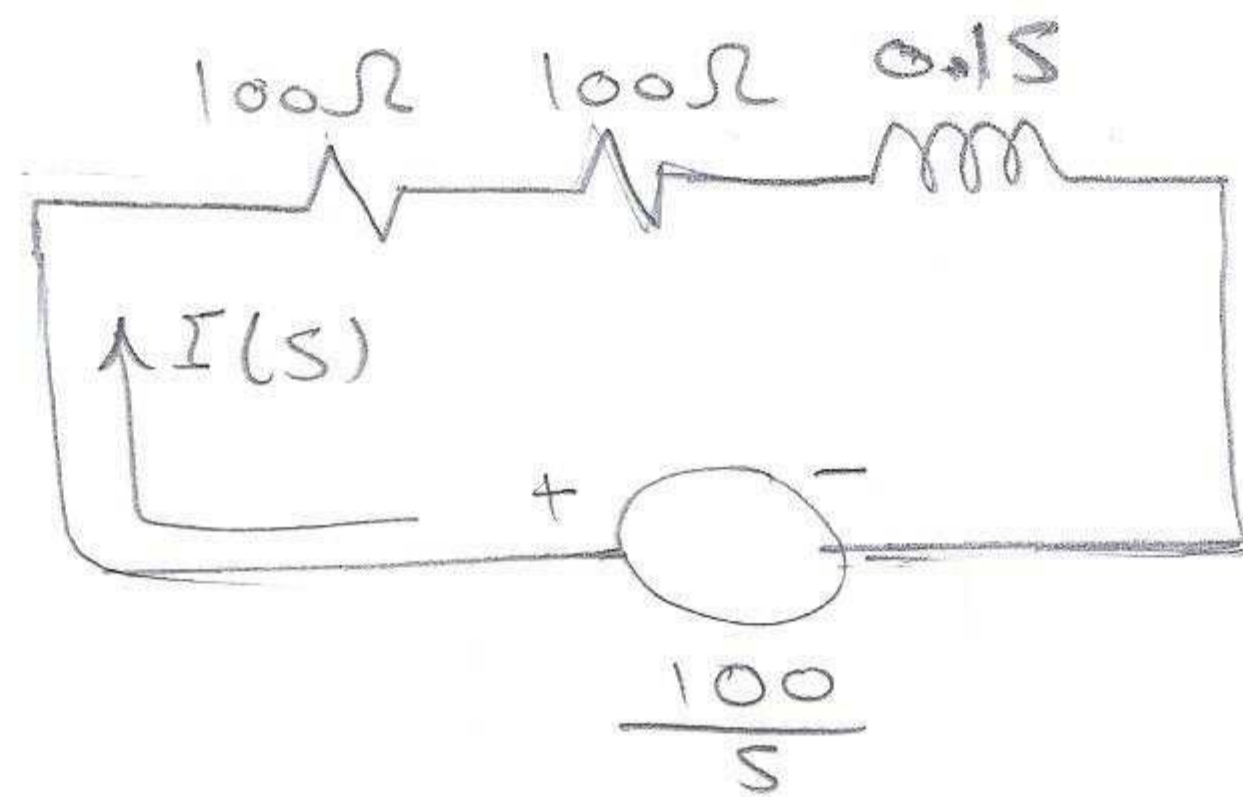 100Ω 100Ω 0.1S
I(S)
+ −
100
S